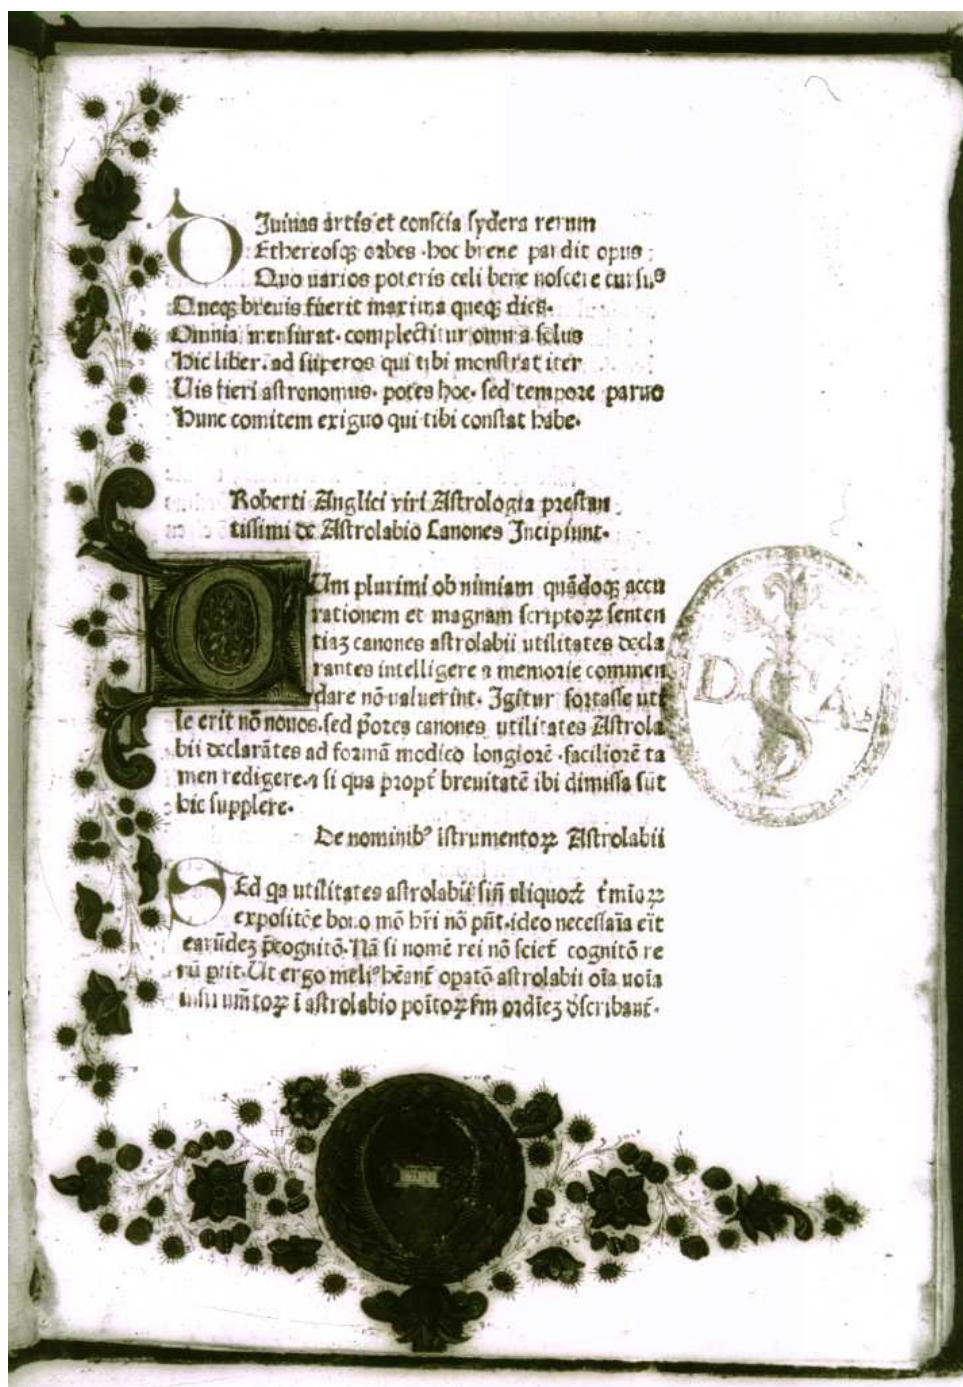 DIuinas artis et conscia sydera rerum
Ethereosqꝫ orbes · hoc breue pandit opus :
Quo uarios poteris celi bene noscere cursus
Queqꝫ breuis fuerit maxima queqꝫ dies.
Omnia mensurat. complectitur omnia solus
Hic liber. ad superos qui tibi monstrat iter
Uis fieri astronomus. potes hoc. sed tempore paruo
Hunc comitem exiguo qui tibi constat habe.
Roberti Anglici viri Astrologia prestan
tissimi de Astrolabio Canones Incipiunt.
CUm plurimi ob nimiam quãdoqꝫ accu
rationem et magnam scriptoꝝ senten
tiaꝫ canones astrolabii utilitates decla
rantes intelligere ⁊ memorie commen
dare nõ ualuerint. Igitur fortasse uti
le erit nõ nouos. sed p̃ores canones utilitates Astrola
bii declarãtes ad formã modico longiorẽ · faciliorẽ ta
men redigere. ⁊ si qua propt̃ breuitatẽ ibi dimissa sũt
hic supplere.
De nominibꝰ istrumentoꝝ Astrolabii
SEd qa utilitates astrolabii sin̄ aliquoꝝ t̃mioꝝ
expositõe bono mõ h̃ri nõ pñt. ideo necessaria erit
earũdeꝫ p̃cognitõ. Nã si nomẽ rei nõ sciet̃ cognitõ re
rũ perit. Ut ergo meliꝰ h̃eant̃ opatõ astrolabii oĩa uoĩa
ĩ astrolabio poĩtoꝝ fm ordiẽꝫ describant̃.
D. C A.